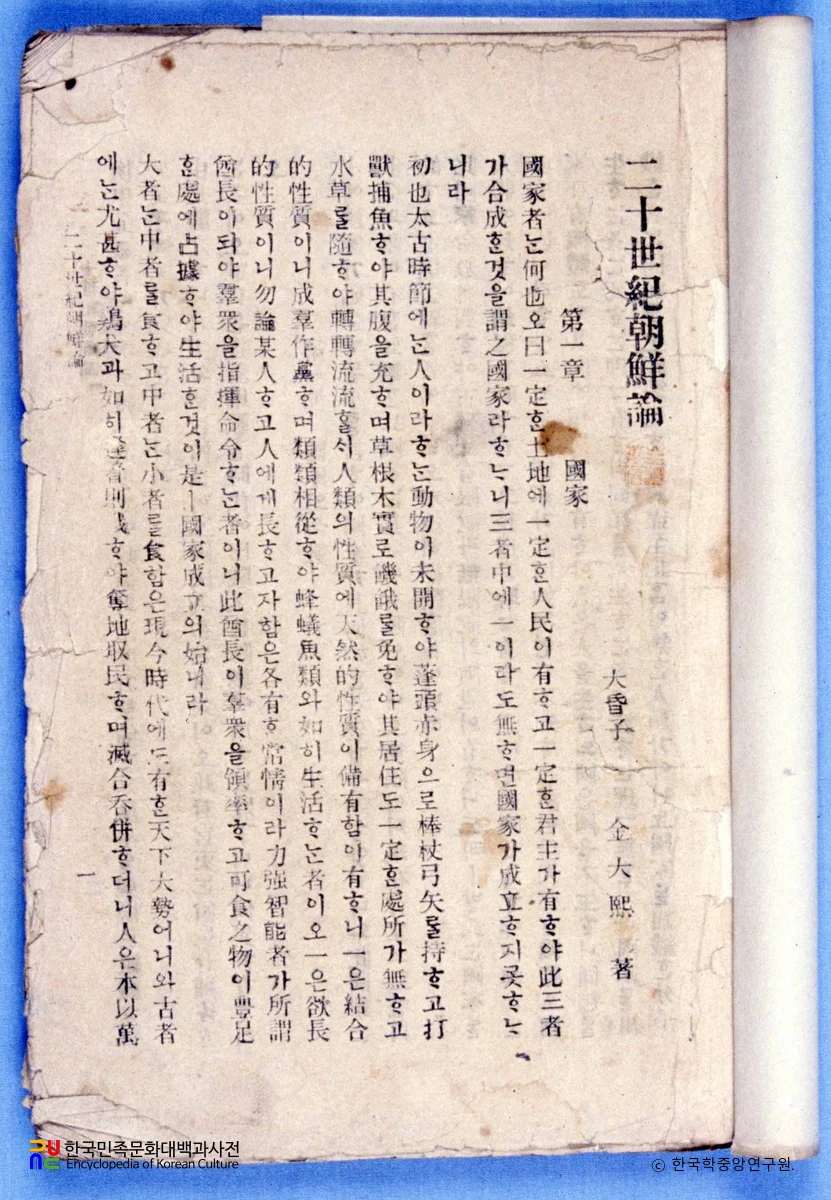 二十世紀朝鮮論
大昏子 金大熙 著
第一章 國家
國家者ᄂᆞᆫ何也오曰一定ᄒᆞᆫ土地에一定ᄒᆞᆫ人民이有ᄒᆞ고一定ᄒᆞᆫ君主가有ᄒᆞ야此三者
가合成ᄒᆞᆫ것을謂之國家라ᄒᆞᄂᆞ니三者中에一이라도無ᄒᆞ면國家가成立ᄒᆞ지못ᄒᆞᄂᆞ
니라
初也太古時節에ᄂᆞᆫ人이라ᄒᆞᄂᆞᆫ動物이未開ᄒᆞ야蓬頭赤身으로棒杖弓矢를持ᄒᆞ고打
獸捕魚ᄒᆞ야其腹을充ᄒᆞ며草根木實로饑餓를免ᄒᆞ야其居住도一定ᄒᆞᆫ處所가無ᄒᆞ고
水草를隨ᄒᆞ야轉轉流流ᄒᆞᆯᄉᆡ人類의性質에天然的性質이備有함이有ᄒᆞ니一은結合
的性質이니成羣作黨ᄒᆞ며類類相從ᄒᆞ야蜂蟻魚類와如히生活ᄒᆞᄂᆞᆫ者이오一은欲長
的性質이니勿論某人ᄒᆞ고人에게長ᄒᆞ고자함은各有ᄒᆞᆫ常情이라力强智能者가所謂
酋長이되야羣衆을指揮命令ᄒᆞᄂᆞᆫ者이니此酋長이羣衆을領率ᄒᆞ고可食之物이豊足
ᄒᆞᆫ處에占據ᄒᆞ야生活ᄒᆞᆫ것이是ㅣ國家成立의始니라
大者ᄂᆞᆫ中者를食ᄒᆞ고中者ᄂᆞᆫ小者를食함은現今時代에도有ᄒᆞᆫ天下大勢어니와古者
에ᄂᆞᆫ尤甚ᄒᆞ야鷄犬과如히逢着則戰ᄒᆞ야奪地取民ᄒᆞ며滅合呑併ᄒᆞ더니人은本以萬
二十世紀朝鮮論
一
한국민족문화대백과사전
Encyclopedia of Korean Culture
ⓒ 한국학중앙연구원.